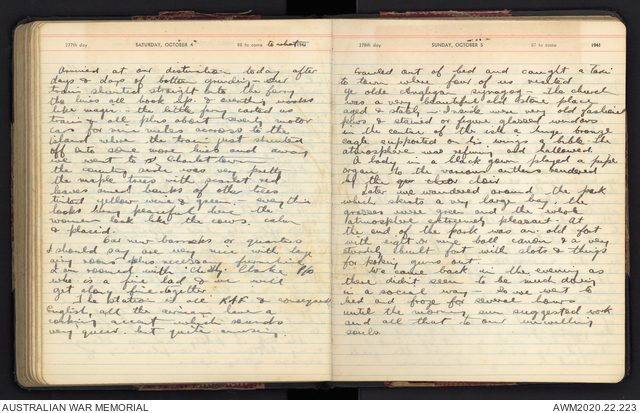 277th day SATURDAY, OCTOBER 4 88 to come
Arrived at our distination today after
days & days of bottom grinding – our
train shunted straight onto the ferry
the lines all hook up & everything works
like magic. the little ferry carted us
train & all plus about seventy motor
cars for nine miles across to the
island where the train just shunted
off onto some more lines and away
we went to Charlottetown
the country side was very pretty
the maple trees with scarlet red
leaves amid banks of other trees
tinted yellow wine & green – every thing
looks very peaceful here the
women look like the cows, calm
& placid.
Our new barracks or quarters
I should say are very nice with
rooms plus necessary furnishing
I am roomed with "Chilly" Clarke P/O
who is a fine lad & we will
get along fine together.
The station is all RAF & consequently
English, all the airmen have a
accent which sounds
very queer but quite amusing.
278th day SUNDAY, OCTOBER 5 87 to come 1941
Crawled out of bed and caught a taxi
to town where four of us visited
ye olde Anglican synagog – the church
was a very beautiful old stone place
aged & stately inside were very old fashioned
plus & stained or figure glassed windows
in the centre of the isle a huge bronze
eagle supported on his wings a bible the
atmosphere was refining and hallowed.
A body in a black gown played a pipe
organ to the various anthems rendered
by the choir.
Later we wandered around the park
which skirts a very large bay, the
grasses were green and the whole
atmosphere extremely pleasant. At
the end of the park was an old fort
with eight or nine ball canon & a very
built fort with slots & things
for poking guns out.
We came back in the evening as
there didn't seem to be much doing
in a social way – so we went to
bed and froze for several hours
until the morning sun suggested work
and all that to our unwilling
souls.
AUSTRALIAN WAR MEMORIAL AWM2020.22.223